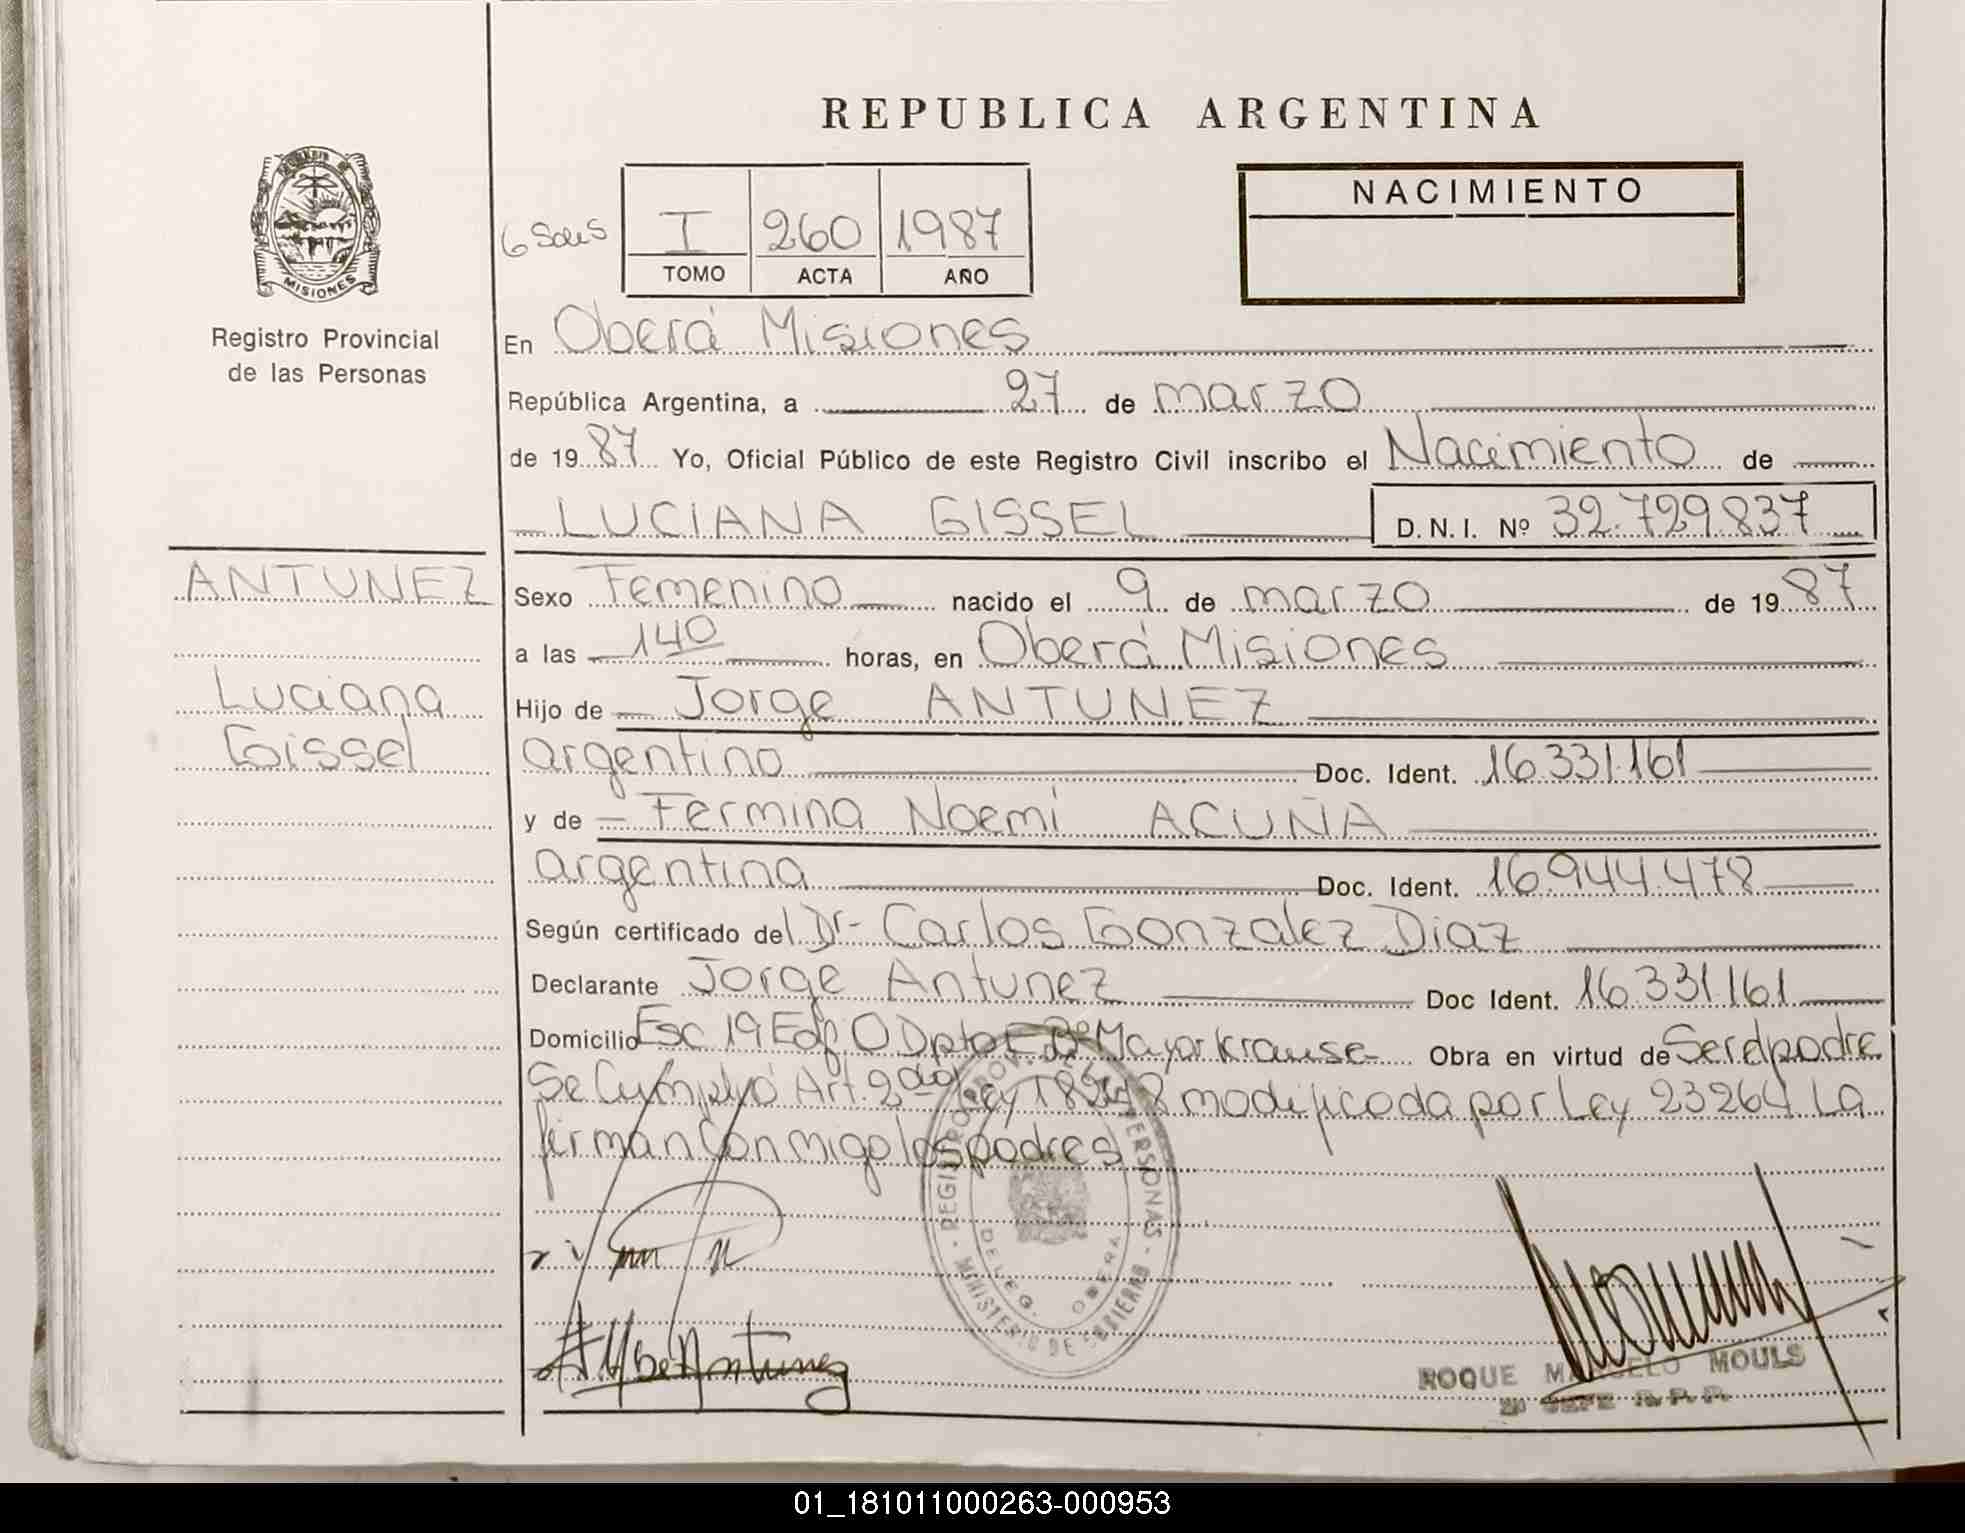 REPUBLICA ARGENTINA
MISIONES
Registro Provincial
de las Personas
I 260 1987
TOMO ACTA AÑO
NACIMIENTO
En Oberá Misiones
República Argentina, a 27 de marzo
de 1987 Yo, Oficial Público de este Registro Civil inscribo el Nacimiento de
LUCIANA GISSEL D.N.I. Nº 32.729.837
ANTUNEZ
Luciana
Gissel
Sexo Femenino nacido el 9 de marzo de 1987
a las 140 horas, en Oberá Misiones
Hijo de Jorge ANTUNEZ
argentino Doc. Ident. 16.331.161
y de Fermina Noemí ACUÑA
argentina Doc. Ident. 16.944.478
Según certificado del Dr. Carlos Gonzalez Diaz
Declarante Jorge Antunez Doc Ident. 16.331.161
Domicilio Esc 19 Edf O Dpto Mayor Krause Obra en virtud de Ser el padre
Se Cumplió Art. 2do Ley 18248 modificada por Ley 23264 La
firman Conmigo los padres
REGISTRO PROV. DE LAS PERSONAS
DELEG. OBERA
MINISTERIO DE GOBIERNO
Antunez
ROQUE MARCELO MOULS
JEFE R.P.P.
01_181011000263-000953